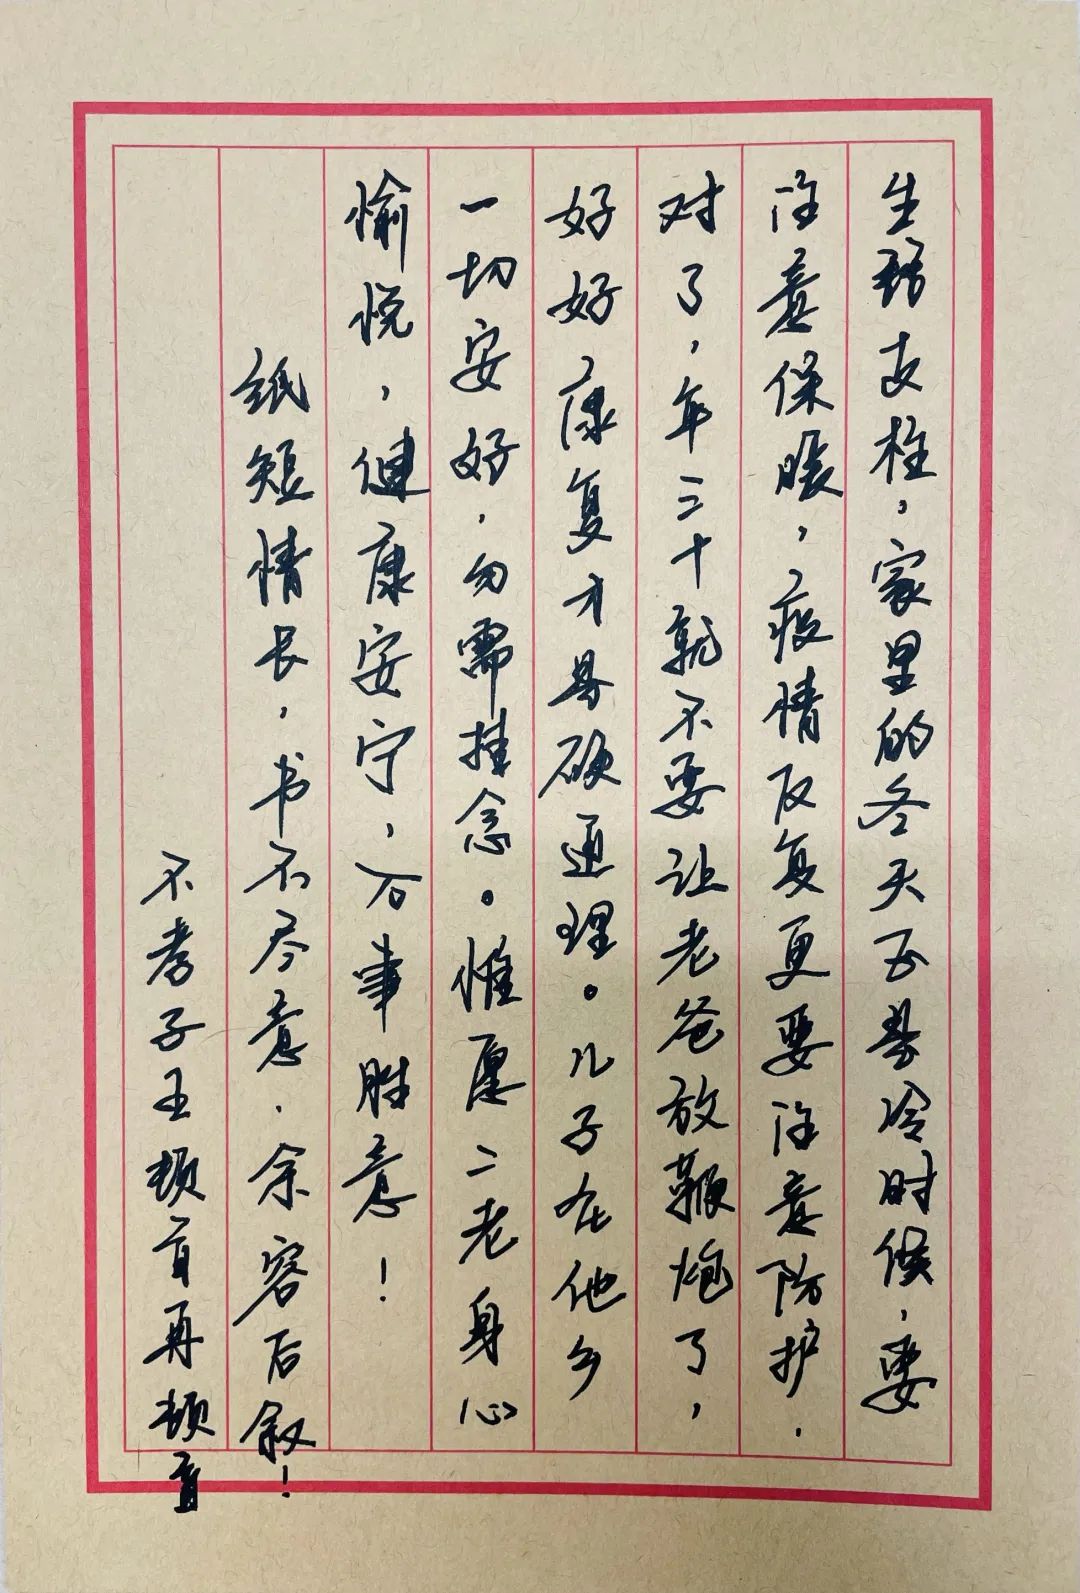 生强支柱，家里的冬天正是冷时候，要
注意保暖，疫情反复更要注意防护．
对了，年三十就不要让老爸放鞭炮了，
好好康复才是硬道理。儿子在他乡
一切安好，勿需挂念。惟愿二老身心
愉悦，健康安宁，万事胜意！
纸短情长，书不尽意．余容后叙！
不孝子王顿首再顿首